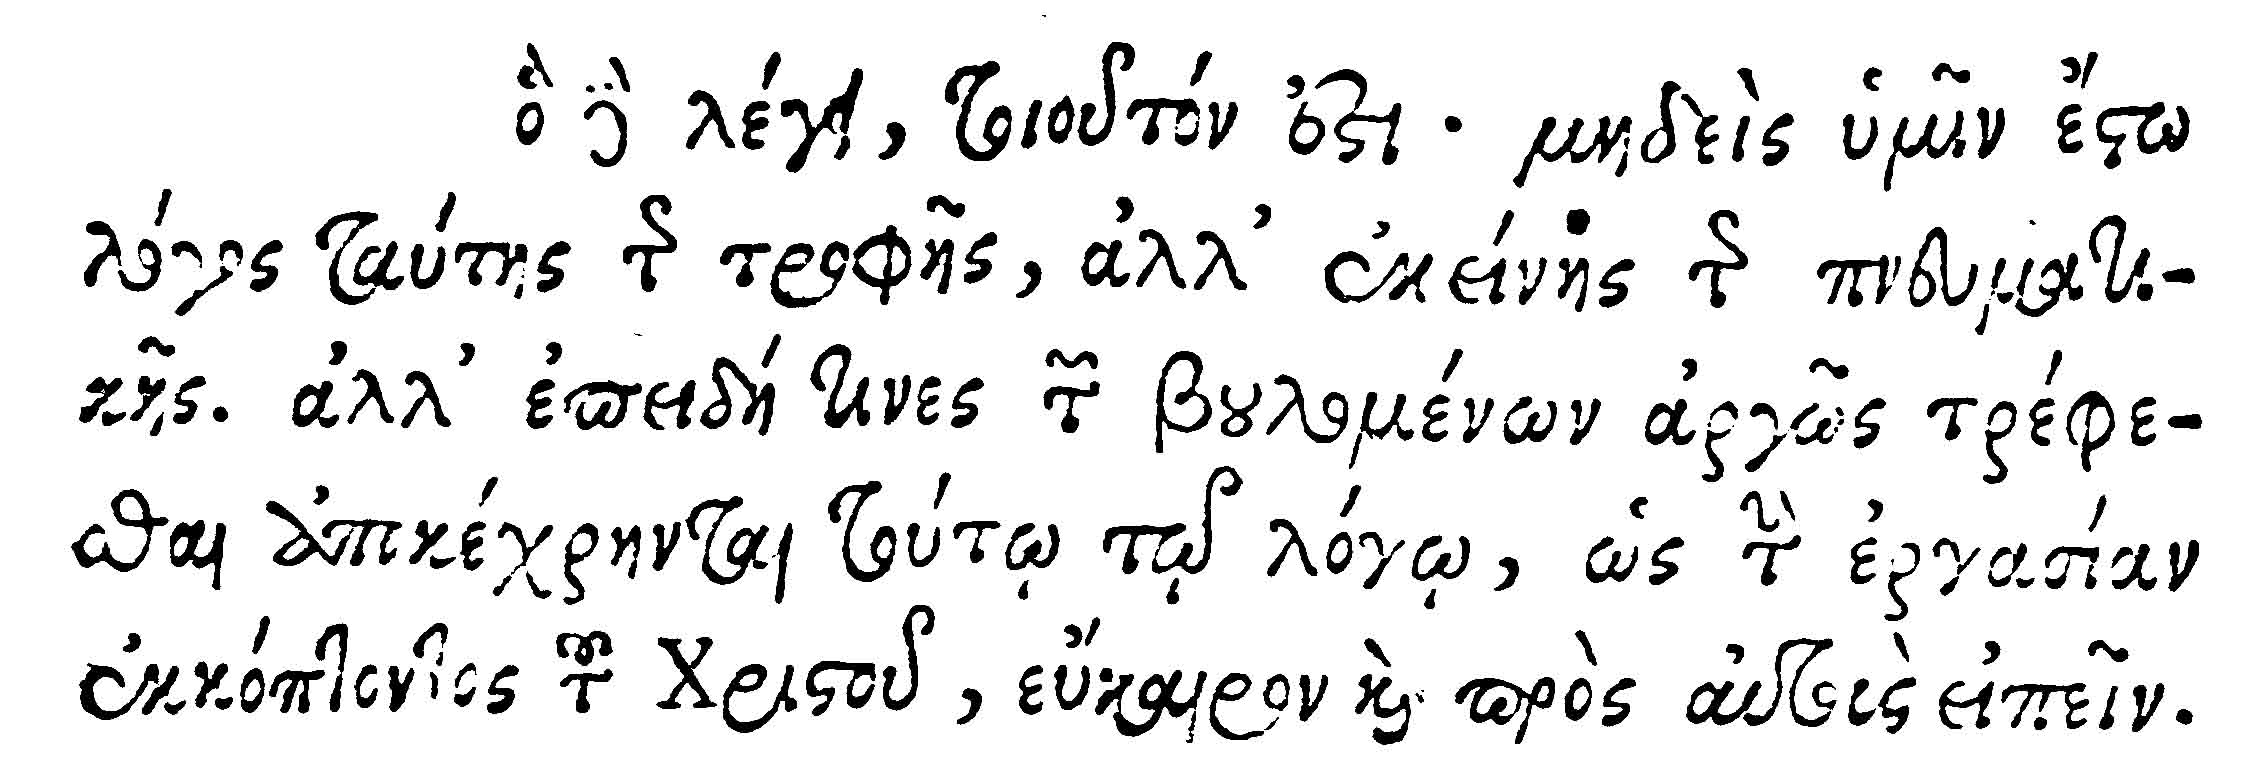 ὃ δὲ λέγει, τοιοῦτόν ἐστι· μηδεὶς ὑμῖν ἔστω
λόγος ταύτης τῆς τροφῆς, ἀλλ' ἐκείνης τῆς πνευματι-
κῆς. ἀλλ' ἐπειδή τινες τῶν βουλομένων ἀργῶς τρέφε-
σθαι ἀποκέχρηνται τούτῳ τῷ λόγῳ, ὡς τὴν ἐργασίαν
ἐκκόπτοντος τοῦ Χριστοῦ, εὔκαιρον καὶ πρὸς αὐτοὺς εἰπεῖν.